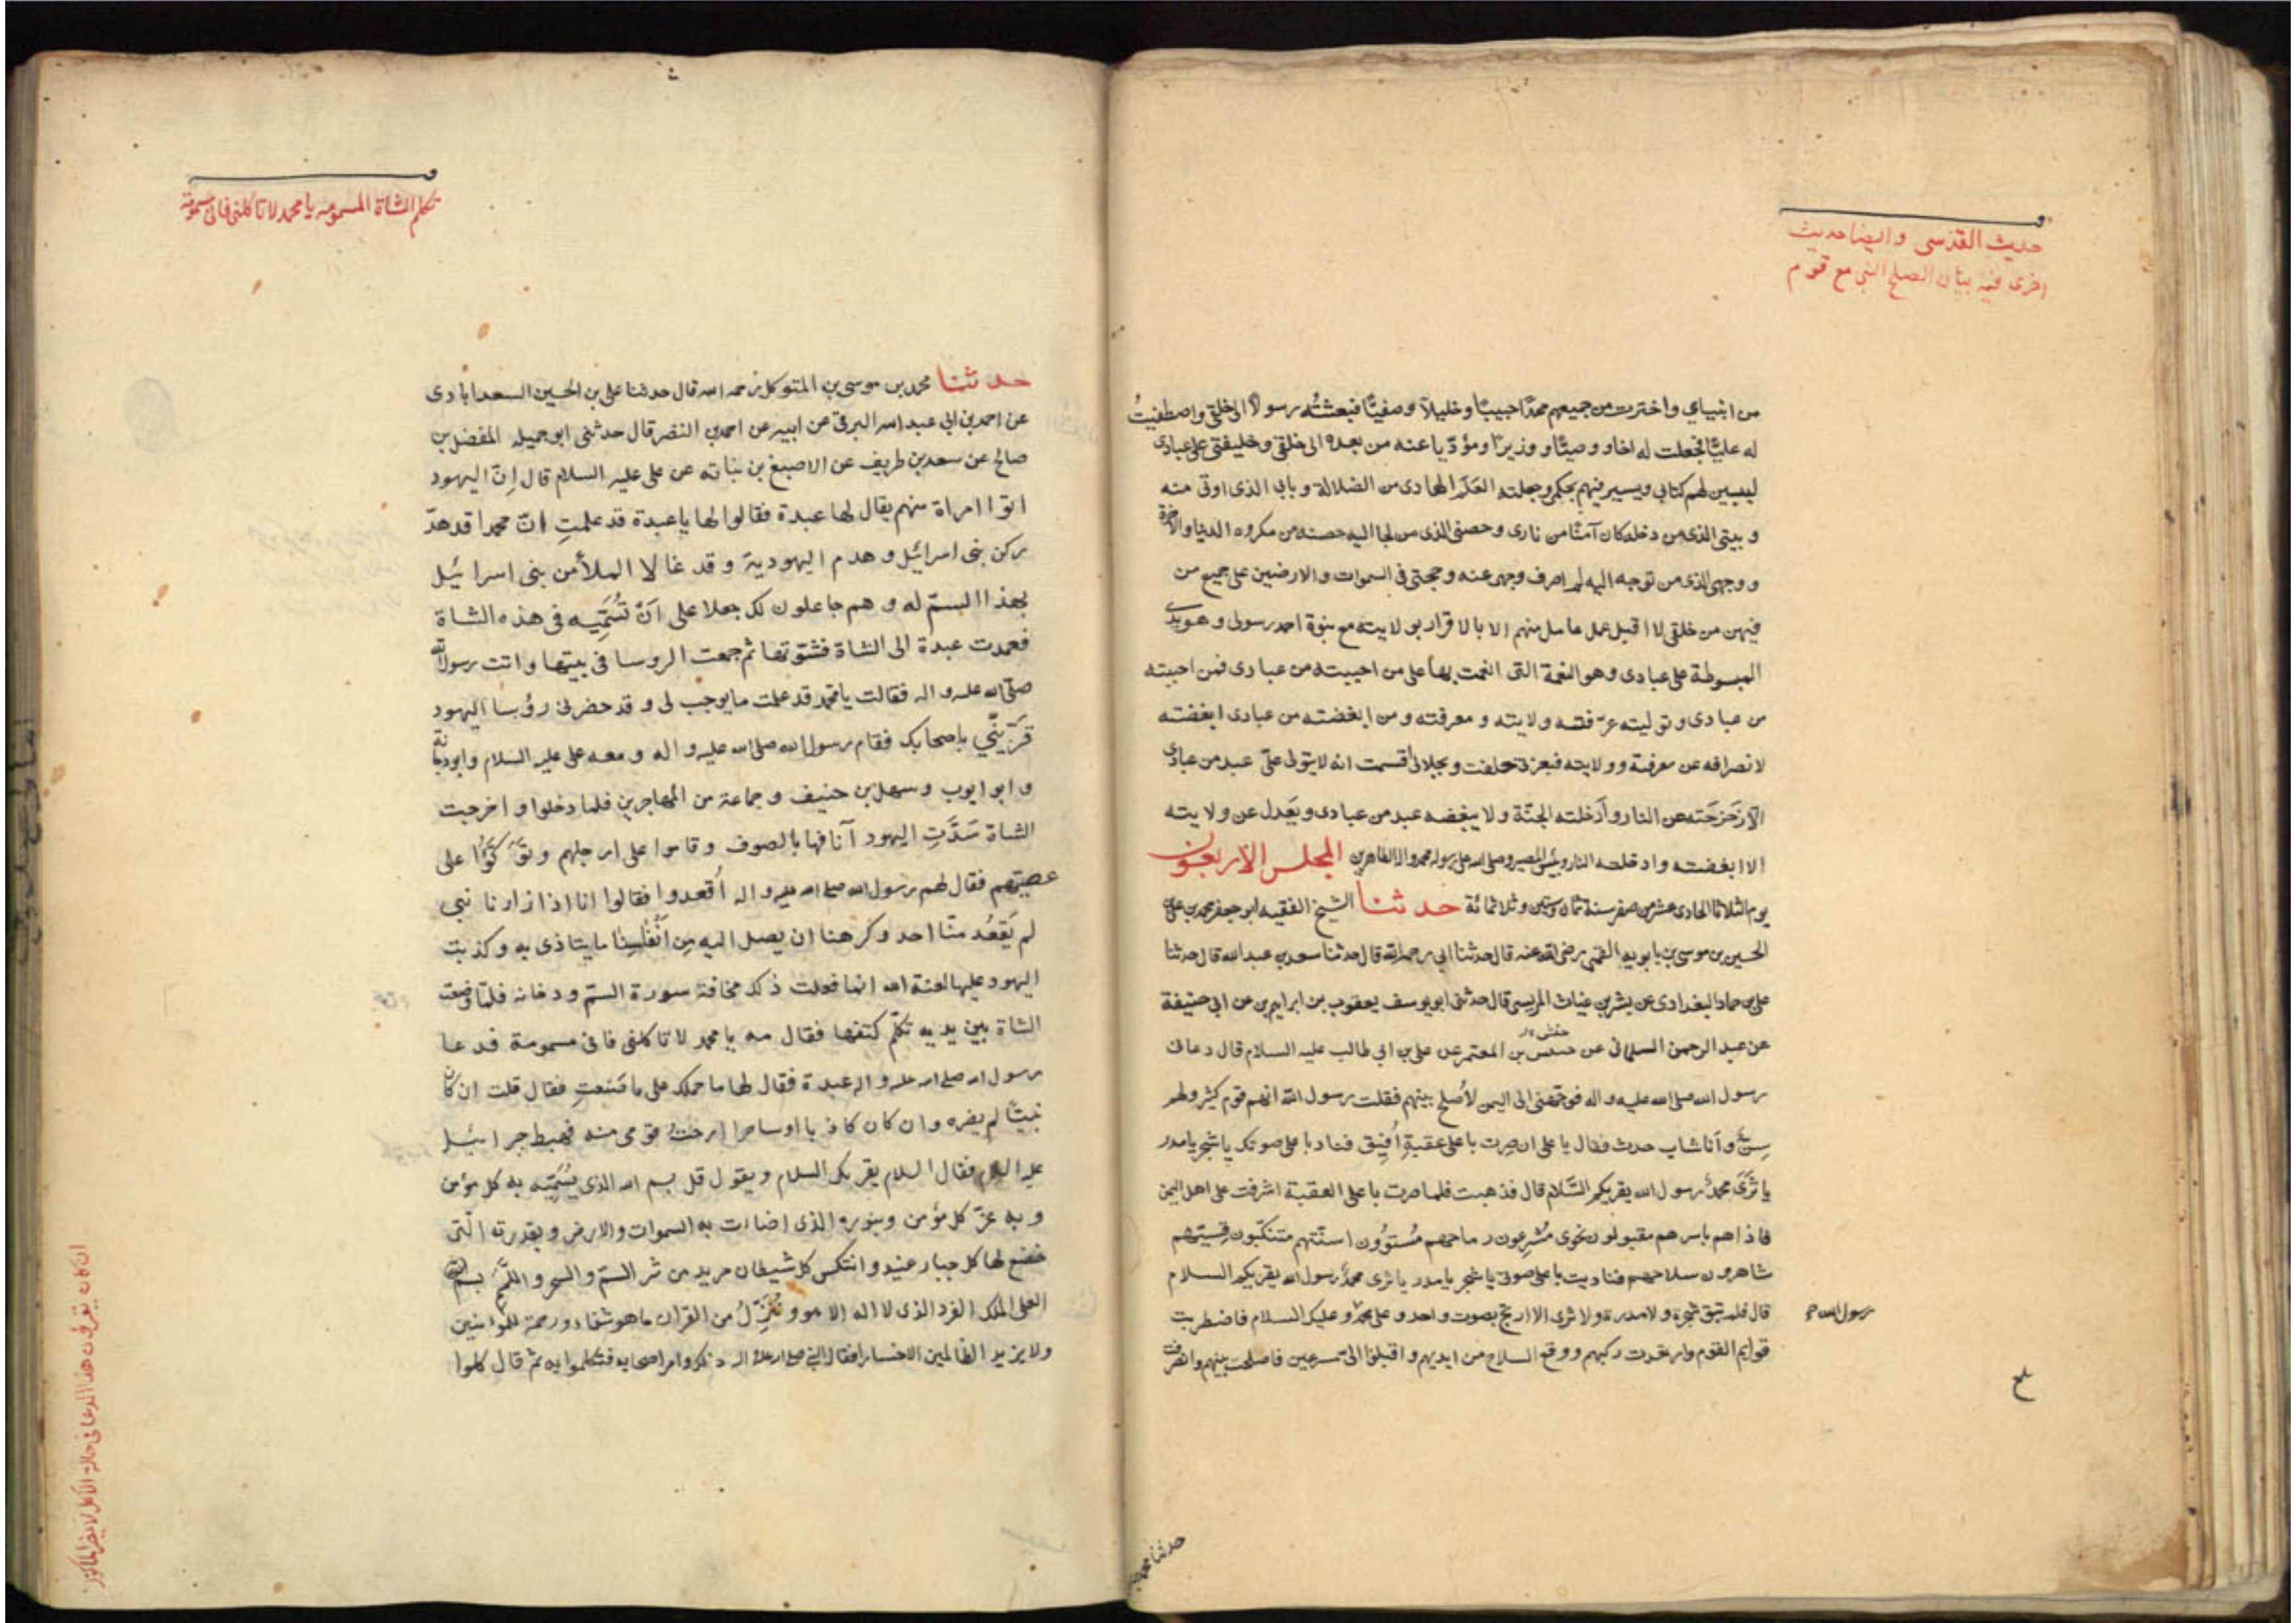 حديث القدسى وايضا حديث
اخرى فيه بيان الصلح النبى مع قوم
من انبيائى واخترت من جميعهم محمدًا حبيبًا وخليلًا وصفيًّا فبعثتُه رسولًا الى خلقى واصطفيتُ
له عليًّا فجعلت له اخا ووصيًّا ووزيرًا ومؤدّيا عنه من بعده الى خلقى وخليفتى على عبادى
ليبين لهم كتابى ويسير فيهم بحكمى وجعلته العَلَم الهادى من الضلالة وبابى الذى اوتى منه
وبيتى الذى من دخله كان آمنًا من نارى وحصنى الذى من لجا اليه حصنه من مكروه الدنيا والآخرة
ووجهى الذى من توجه اليه لم اصرف وجهى عنه وحجتى فى السموات والارضين على جميع من
فيهن من خلقى لا اقبل عمل عامل منهم الا بالاقرار بولايته مع نبوة احمد رسولى وهو يدى
المبسوطة على عبادى وهو النعمة التى انعمت بها على من احببته من عبادى فمن احببته
من عبادى وتوليته عرّفته ولايته ومعرفته ومن ابغضته من عبادى ابغضته
لانصرافه عن معرفته وولايته فبعزتى حلفت وبجلالى اقسمت انه لا يتولى علىّ عبد من عبادى
الّا زَحزَحَته عن النار وأدخلته الجنّة ولا يبغضه عبد من عبادى ويَعدل عن ولايته
الا ابغضته وادخلته النار وبئس المصير وصلى الله على رسوله محمد واله الطاهرين المجلس الاربعون
يوم الثلاثا الحادى عشر من صفر سنة ثمان وستين وثلاثمائة حدثنا الشيخ الفقيه ابو جعفر محمد بن على
الحسين بن موسى بن بابويه القمى رضى الله عنه قال حدثنا ابى رحمه الله قال حدثنا سعد بن عبد الله قال حدثنا
على بن حماد البغدادى عن بشر بن غياث المريسى قال حدثنى ابو يوسف يعقوب بن ابراهيم عن ابى حنيفة
عن عبد الرحمن السلمانى عن حنش بن المعتمر عن على بن ابى طالب عليه السلام قال دعانى
رسول الله صلى الله عليه واله فوجّهنى الى اليمن لأُصلح بينهم فقلت رسول الله انهم قوم كثير ولهم
سِنّ وأنا شاب حدث فقال يا على ان صرت باعلى عقبة أُفيق فناد باعلى صوتك يا شجر يا مدر
يا ثَرَى محمدٌ رسول الله يقريكم السَّلام قال فذهبت فلما صرت باعلى العقبة اشرفت على اهل اليمن
فاذا هم باسرهم مقبلون نحوى مُشرعون رماحهم مُستوُون اسنّتهم متنكّبون قِسيّهم
شاهرون سلاحهم فناديت باعلى صوتى يا شجر يا مدر يا ثرى محمدٌ رسول الله يقريكم السلام
قال فلم تبق شجرة ولا مدرة ولا ثرى الا ارتجّ بصوت واحد وعلى محمد وعليك السلام فاضطربت
رسول الله
قوايم القوم وارتعدت ركبهم ووقع السلاح من ايديهم واقبلوا الىّ مسرعين فاصلحت بينهم وانصرفت
حدثنا محمد
تكلم الشاة المسمومه يا محمد لا تاكلنى فانى مسمومة
حدثنا محمد بن موسى بن المتوكل رحمه الله قال حدثنا على بن الحسين السعدابادى
عن احمد بن ابى عبد الله البرقى عن ابيه عن احمد بن النضر قال حدثنى ابو جميله المفضل بن
صالح عن سعد بن طريف عن الاصبغ بن نباته عن على عليه السلام قال إنّ اليهود
اتوا امراة منهم يقال لها عبدة فقالوا لها يا عبدة قد علمتِ انّ محمدا قد هدّ
ركن بنى اسرائيل وهدم اليهودية وقد غالا الملأ من بنى اسرائيل
بهذا السمّ له وهم جاعلون لك جعلا على اَنْ تَسُمِّيه فى هذه الشاة
فعمدت عبدة الى الشاة فشوتها ثم جمعت الروسا فى بيتها واتت رسول الله
صلى الله عليه واله فقالت يا محمد قد علمت ما يوجب لى وقد حضرنى رؤسا اليهود
فَزَيّنّى باصحابك فقام رسول الله صلى الله عليه واله ومعه على عليه السلام وابو دجانة
وابو ايوب وسهل بن حنيف وجماعة من المهاجرين فلما دخلوا واخرجت
الشاة سَدَّتِ اليهود آنافها بالصوف وقاموا على ارجلهم وتوَكَّؤُا على
عصيّهم فقال لهم رسول الله صلى الله عليه واله أُقعدوا فقالوا انا اذا زارنا نبى
لم يَقعُد منّا احد وكرهنا ان يصل اليه مِن اَنْفاسِنا ما يتاذى به وكذبت
اليهود عليها لعنة الله انما فعلت ذلك مخافة سورة السمّ ودخانه فلمّا وضعت
الشاة بين يديه تكلّم كتفها فقال مه يا محمد لا تاكلنى فانى مسمومة فدعا
رسول الله صلى الله عليه واله عبدة فقال لها ما حملك على ما صَنعتِ فقال قلت ان كان
نبيًّا لم يضره وان كان كاذبا او ساحرا ارحتُ قومى منه فهبط جبرائيل
عليه السلام فقال السلام يقريك السلام ويقول قل بسم الله الذى يُسَمِّيه به كل مؤمن
وبه عزّ كل مؤمن وبنوره الذى اضاءت به السموات والارض وبقدرته الّتى
خضع لها كل جبار عنيد وانتكس كل شيطان مريد من شر السمّ والسحر واللّمَم بسم الله
العلى الملك الفرد الذى لا اله الا هو ونُنَزِّلُ من القران ما هو شفاء ورحمة للمؤمنين
ولا يزيد الظالمين الا خسارا فقال النبى صلى الله عليه واله ذلك وامر اصحابه فتكلموا به ثم قال كلوا